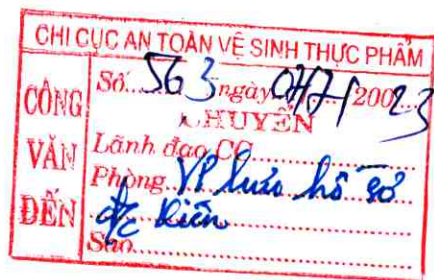 CHI CỤC AN TOÀN VỆ SINH THỰC PHẨM
CÔNG VĂN ĐẾN
Số.....563 ngày 04/7/2023
CHUYỂN
Lãnh đạo CC....................
Phòng VP lưu hồ sơ
đ/c Kiên
Sao....................